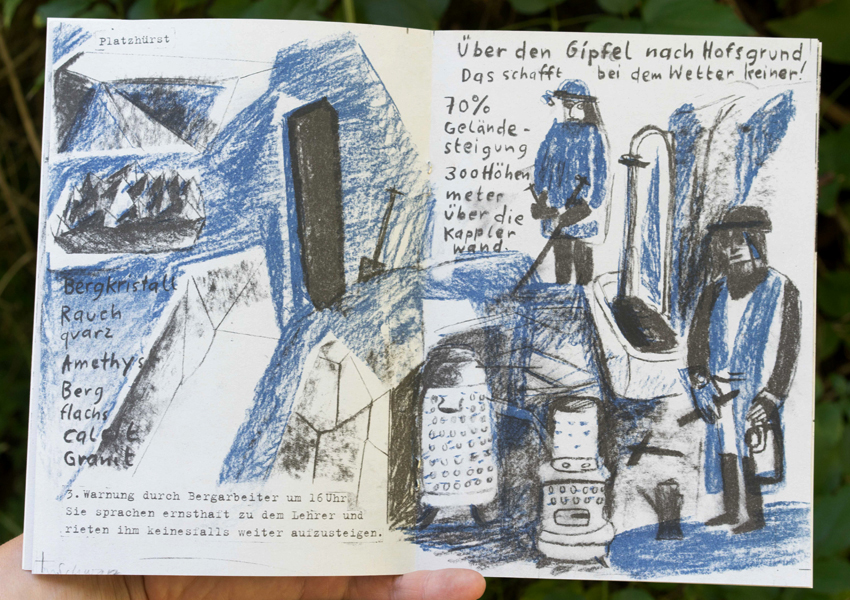 Platzhürst
Bergkristall
Rauch
quarz
Amethys
Berg
flachs
Calcit
Granit
3. Warnung durch Bergarbeiter um 16Uhr
Sie sprachen ernsthaft zu dem Lehrer und
rieten ihm keinesfalls weiter aufzusteigen.
Über den Gipfel nach Hofsgrund
Das schafft bei dem Wetter keiner!
70%
Gelände-
steigung
300Höhen
meter
über die
Kappler
wand.